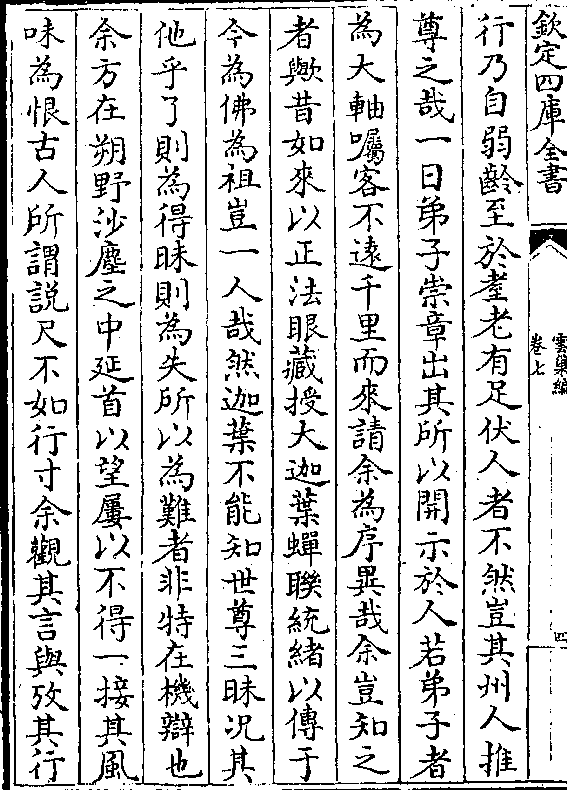 欽定四庫全書
雲巢編
卷七
四
行乃自弱齡至於耋老有足伏人者不然豈其州人推
尊之哉一日弟子崇章出其所以開示於人若弟子者
為大軸囑客不遠千里而來請余為序異哉余豈知之
者歟昔如來以正法眼藏授大迦葉蟬聯統緒以傳于
今為佛為祖豈一人哉然迦葉不能知世尊三昧况其
他乎了則為得昧則為失所以為難者非特在機辯也
余方在朔野沙塵之中延首以望屢以不得一接其風
味為恨古人所謂説尺不如行寸余觀其言與攷其行